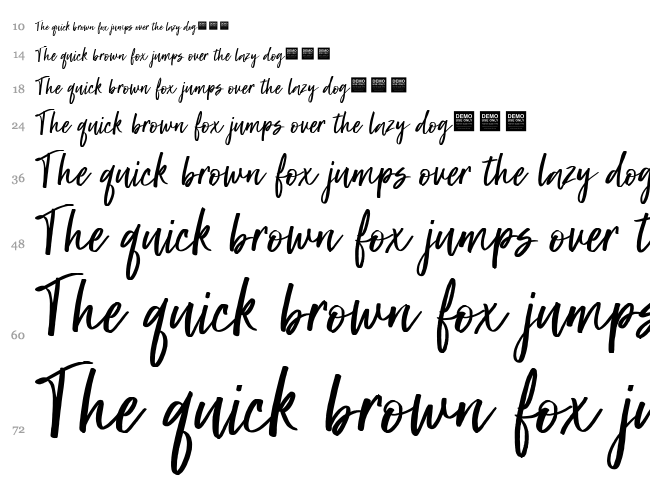 10 The quick brown fox jumps over the lazy dog
14 The quick brown fox jumps over the lazy dog
18 The quick brown fox jumps over the lazy dog
24 The quick brown fox jumps over the lazy dog DEMO USE ONLY DEMO USE ONLY DEMO USE ONLY
36 The quick brown fox jumps over the lazy dog
48 The quick brown fox jumps over t
60 The quick brown fox jumps
72 The quick brown fox ju